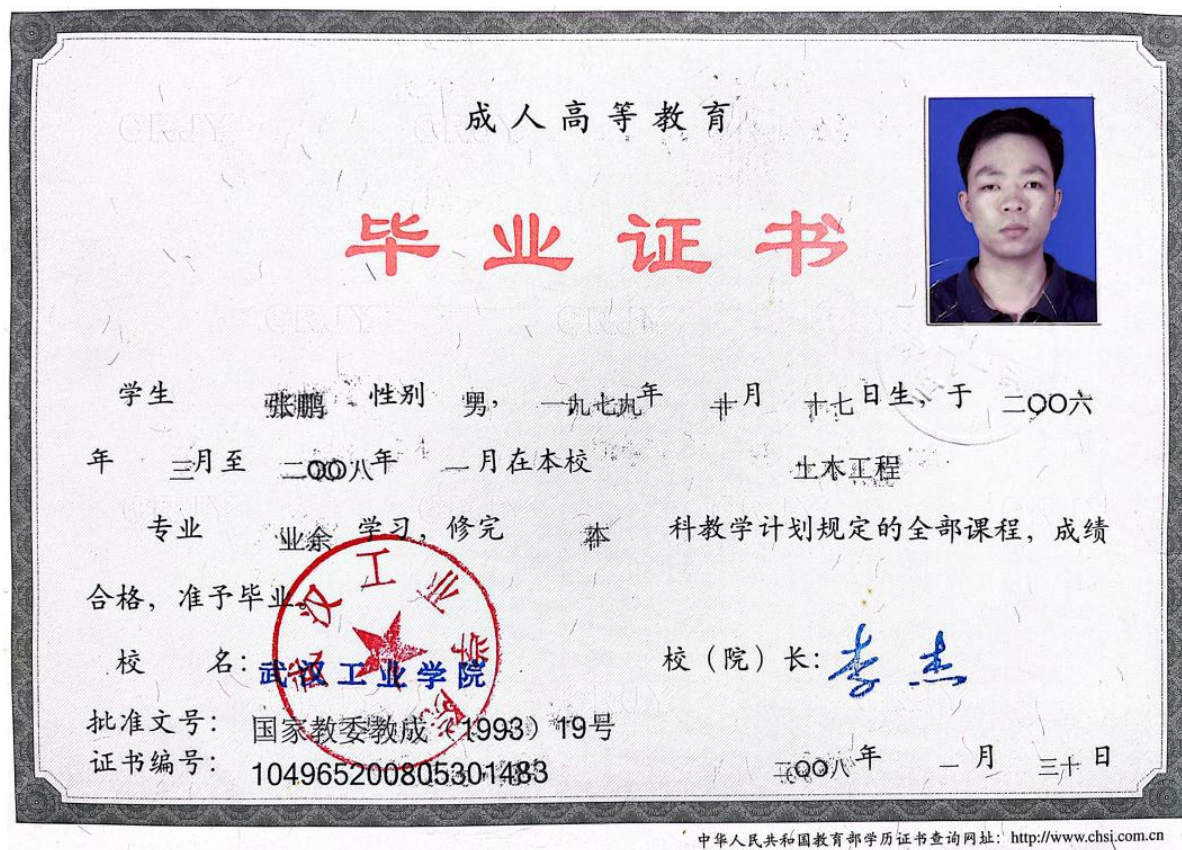 成人高等教育
毕业证书
学生 张鹏 性别 男, 一九七九年 十月 十七日生, 于 二〇〇六
年 三月至 二〇〇八年 一月在本校 土木工程
专业 业余 学习, 修完 本 科教学计划规定的全部课程, 成绩
合格, 准予毕业。
武汉工业学院
校 名: 武汉工业学院 校（院）长: 李杰
批准文号: 国家教委教成（1993）19号
证书编号: 104965200805301483 二〇〇八年 一月 三十日
中华人民共和国教育部学历证书查询网址: http://www.chsi.com.cn